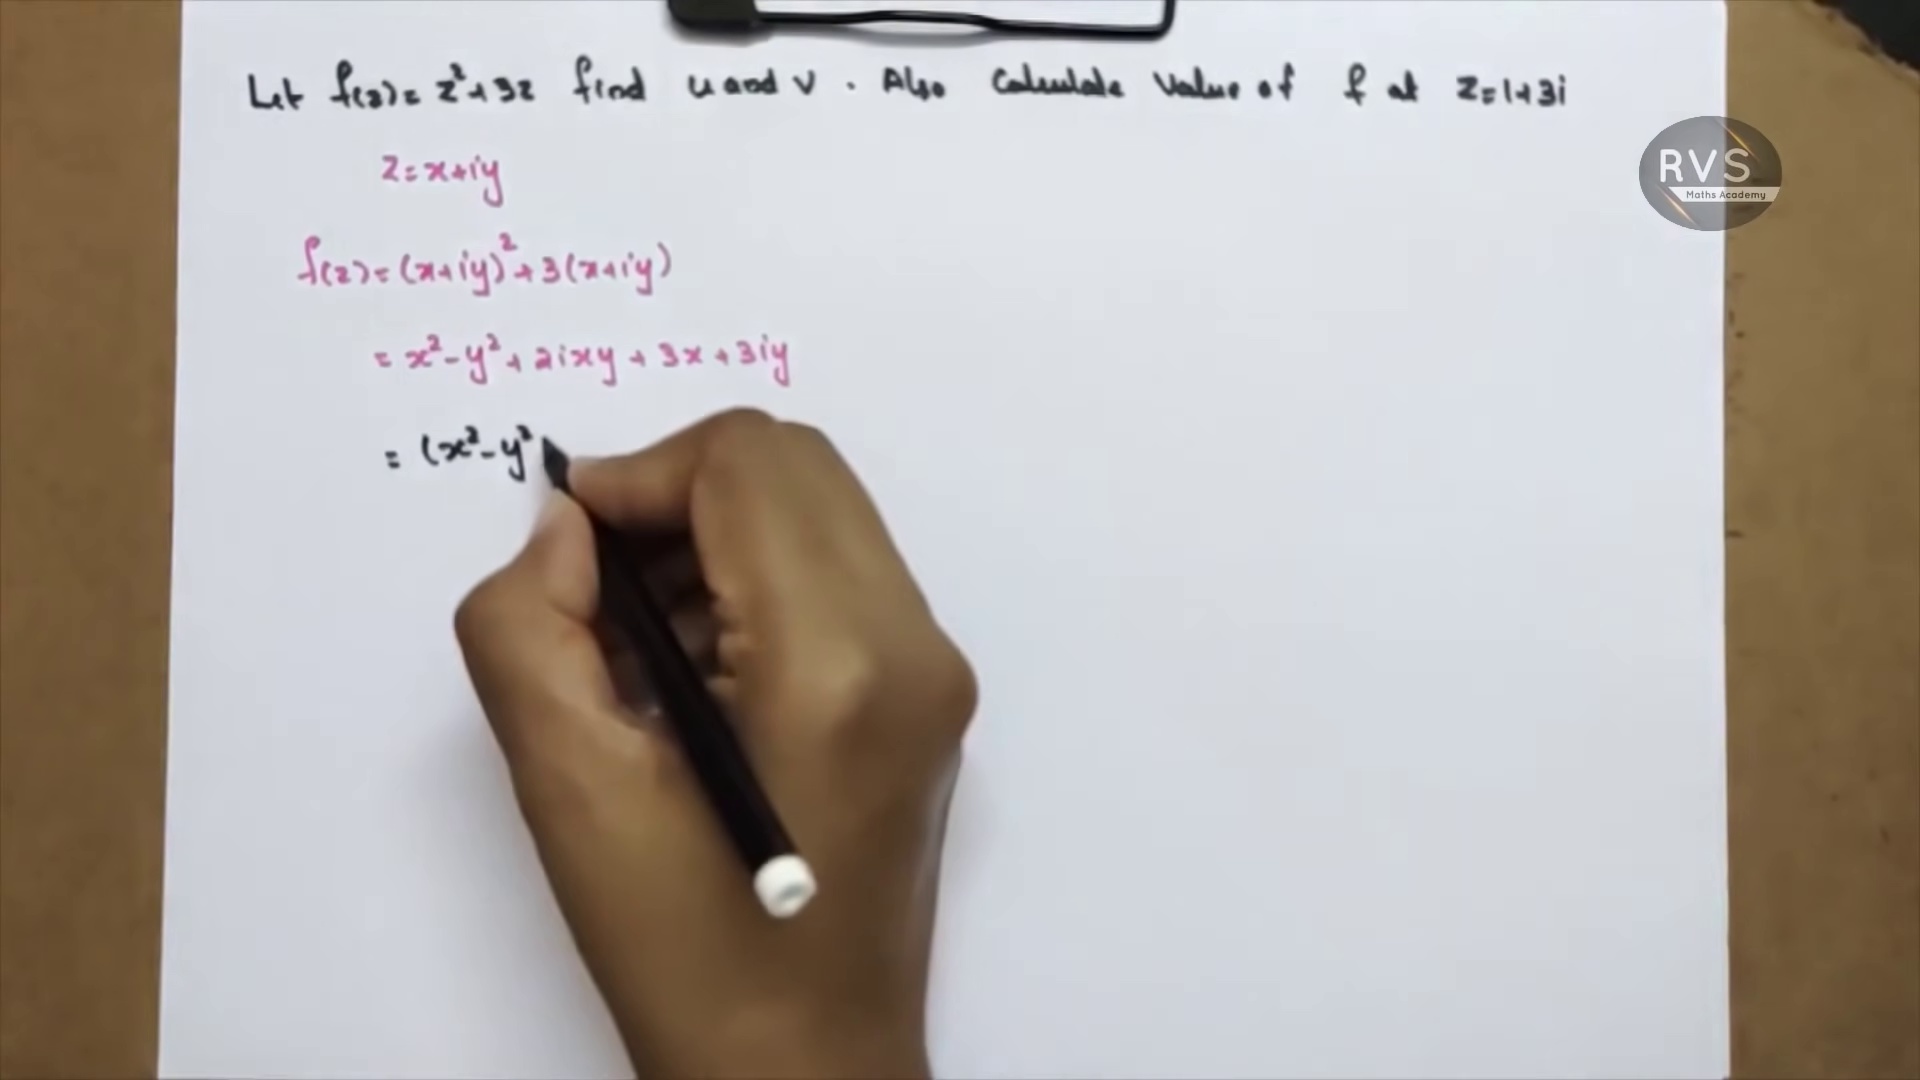 Let f(z) = z² + 3z find u and v. Also Calculate Value of f at z = 1+3i
RVS
Maths Academy
z = x+iy
f(z) = (x+iy)² + 3(x+iy)
= x² - y² + 2ixy + 3x + 3iy
= (x² - y²